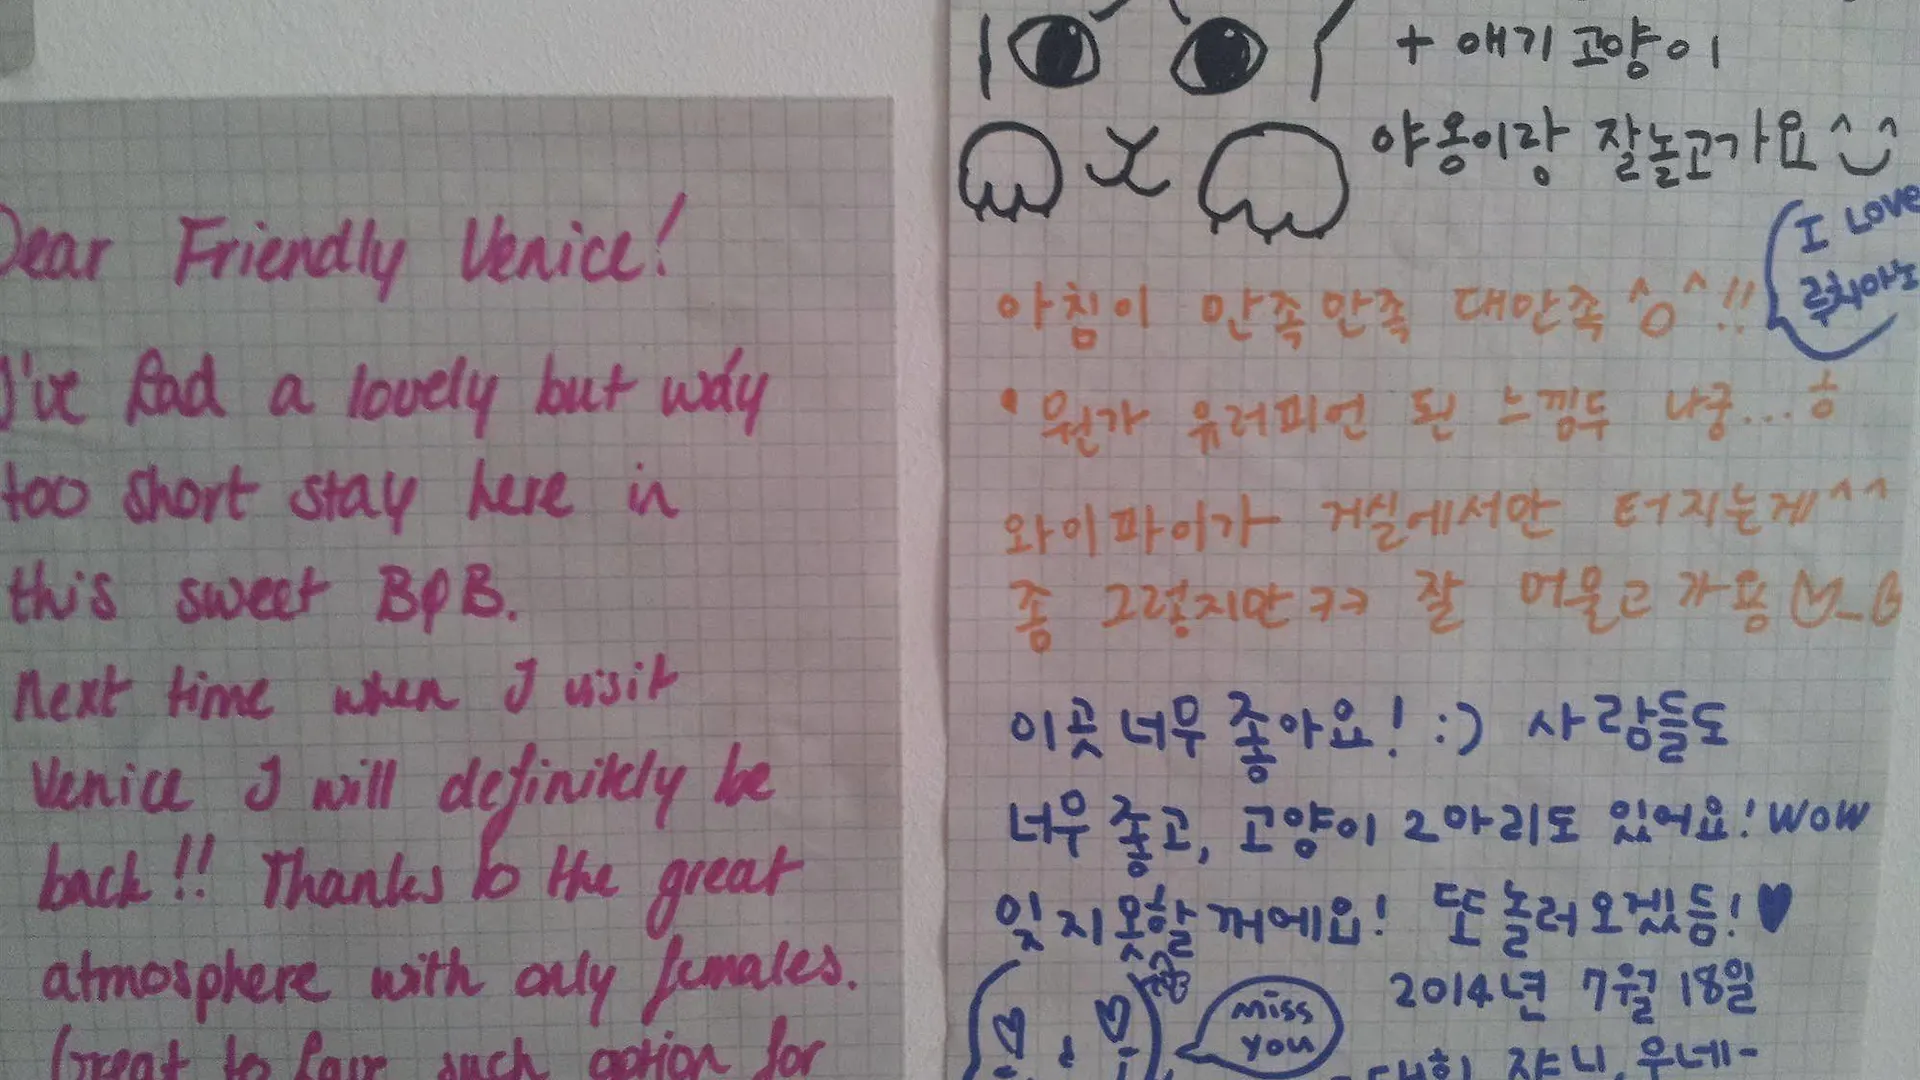 Dear Friendly Venice!
I've had a lovely but way
too short stay here in
this sweet B&B.
Next time when I visit
Venice I will definitely be
back!! Thanks to the great
atmosphere with only females.
Great to have such option for
+ 애기 고양이
야옹이랑 잘놀고가요^_^
I LOVE
루치아노
아침이 만족만족 대만족 ^o^!!
• 뭔가 유러피언 된 느낌두 나궁...ㅎ
와이파이가 거실에서만 터지는게^^
좀 그렇지만ㅋㅋ 잘 머물고 가용
이곳 너무 좋아요! :) 사람들도
너무 좋고, 고양이 2마리도 있어요! WOW
잊지 못할 꺼에요! 또 놀러오겠듬! ♥
2014년 7월 18일
miss
you